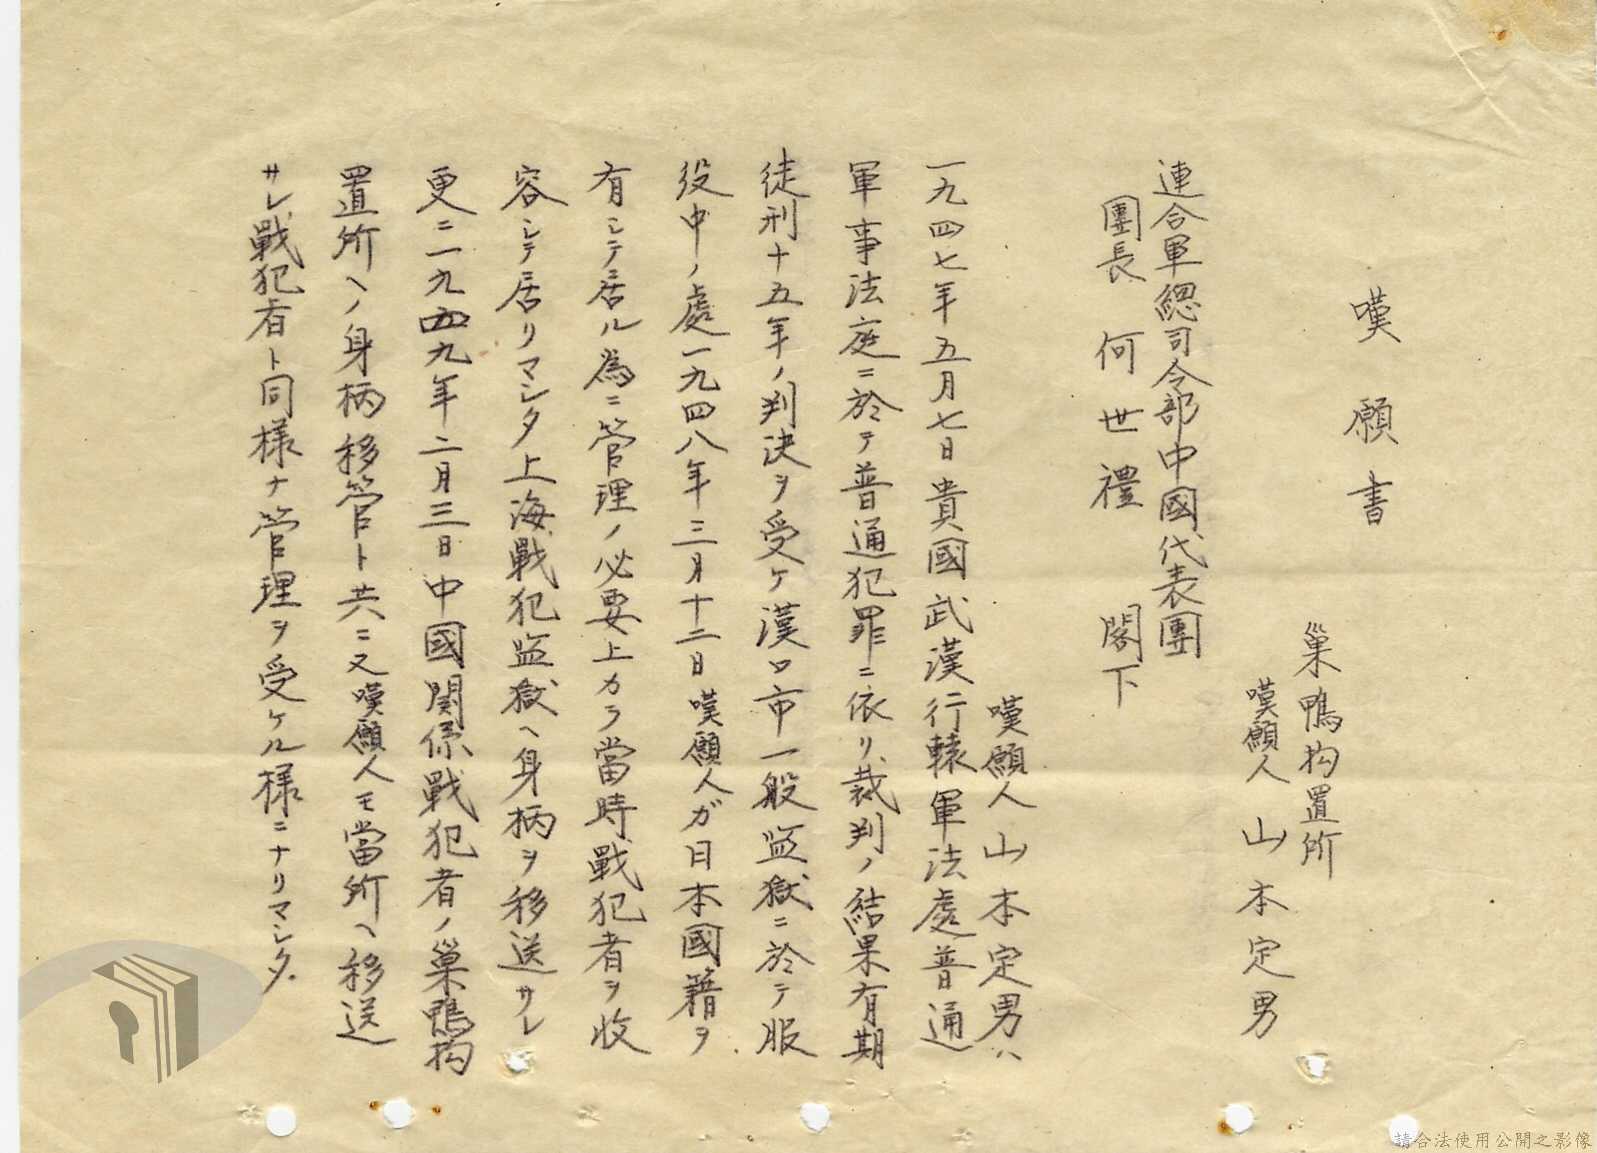 嘆願書
巣鴨拘置所
嘆願人 山本定男
連合軍總司令部中國代表團
團長 何世禮 閣下
嘆願人 山本定男ハ
一九四七年五月七日貴國武漢行轅軍法處普通
軍事法庭ニ於テ普通犯罪ニ依リ裁判ノ結果有期
徒刑十五年ノ判決ヲ受ケ漢口市一般監獄ニ於テ服
役中ノ處一九四八年三月十二日嘆願人ガ日本國籍ヲ
有シテ居ル為ニ管理ノ必要上カラ當時戰犯者ヲ收
容シテ居リマシタ上海戰犯監獄ヘ身柄ヲ移送サレ
更ニ一九四九年二月三日中國関係戰犯者ノ巣鴨拘
置所ヘノ身柄移管ト共ニ又嘆願人モ當所ヘ移送
サレ戰犯者ト同様ナ管理ヲ受ケル様ニナリマシタ.
請合法使用公開之影像